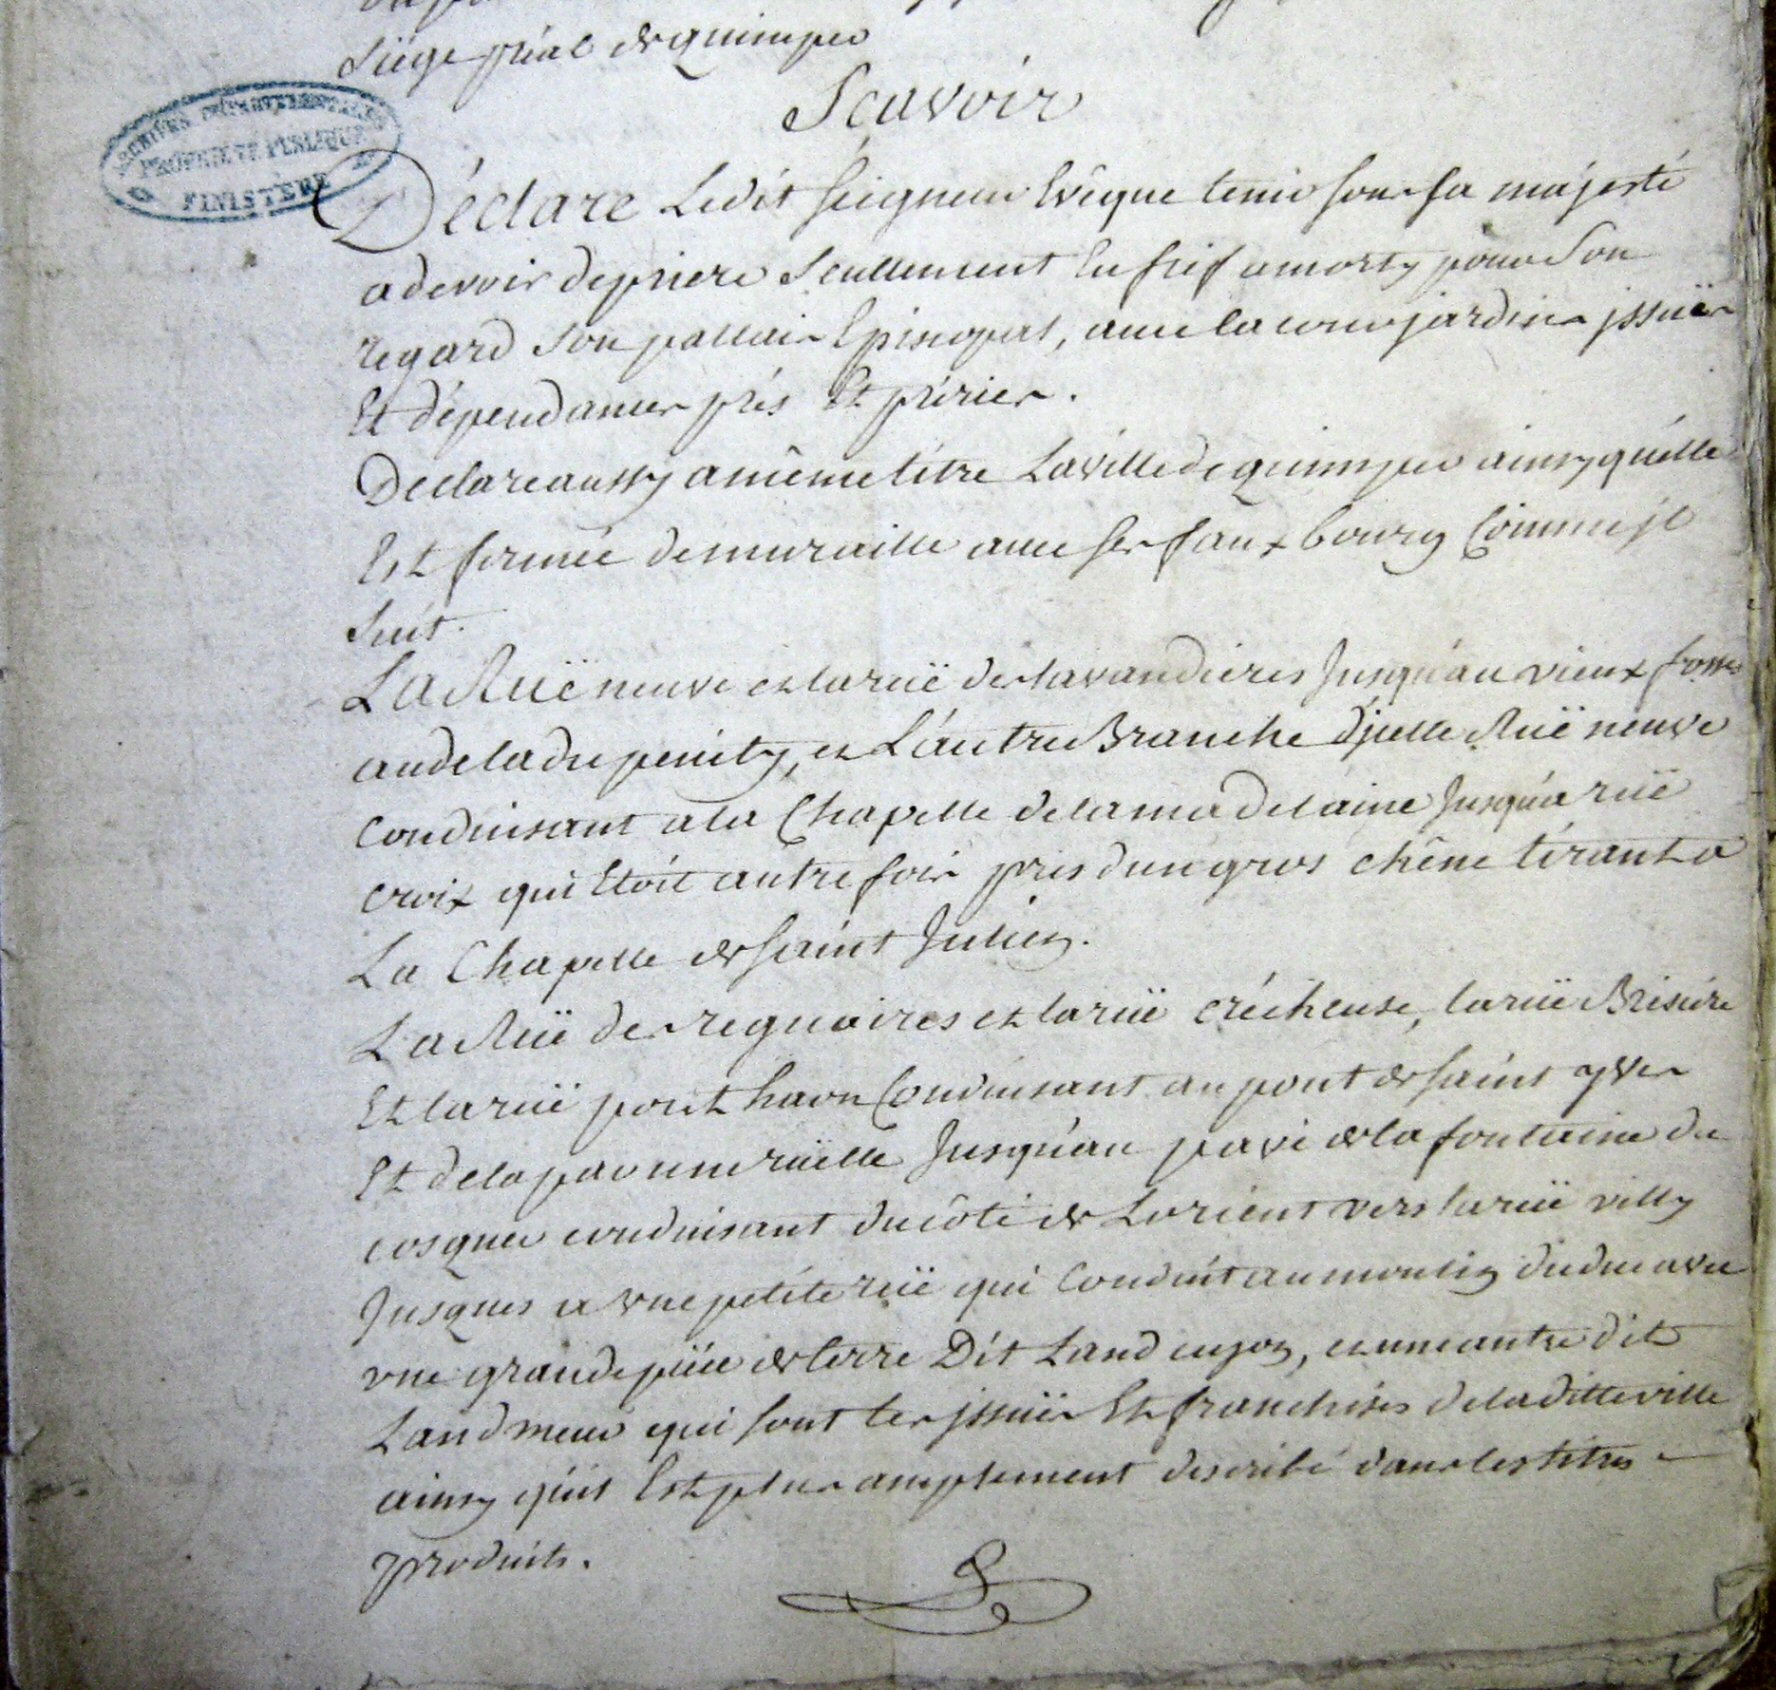 Siége pr̃éal de quimper
Scavoir
ARCHIVES DÉPARTEMENTALES
PROPRIÉTÉ PUBLIQUE
FINISTÈRE
Déclare Ledit seigneur Evêque tenir sous sa majesté
a devoir de priere Seullement En fief amorty pour Son
regard Son pallais Episcopal, avec la cour jardins jssuës
Et dépendances prés Et périer.
Declare aussy a même titre La ville de quimper ainsy qu'elle
Est fermée de muraille avec ses faux bourg Comme jl
Suit.
La Ruë neuve et la ruë des lavandieres Jusqu'au vieux fossés
au dela du penity, et L'autre Branche d'jcelle Ruë neuve
conduisant a la Chapelle de la madelaine Jusqu'a ruë
croix qui Etoit autrefois prés d'un gros chêne tirant a
La Chapelle de saint Julien.
La Ruë des reguaires et la ruë crécheuse, la ruë Brisiére
Et la ruë pont havn Conduisant au pont de saint yves
Et de la par une ruëlle Jusqu'au pavé de la fontaine du
cosquer conduisant du côté de Lorient vers la ruë villy
Jusques a vne petite ruë qui Conduit au moulin du duc avec
vne grande piéce de terre Dit Land , et une autre dit
Landmeur qui sont les jssuës Et franchises de la ditte ville
ainsy qu'il Est plus amplement describé dans les titres
produits.